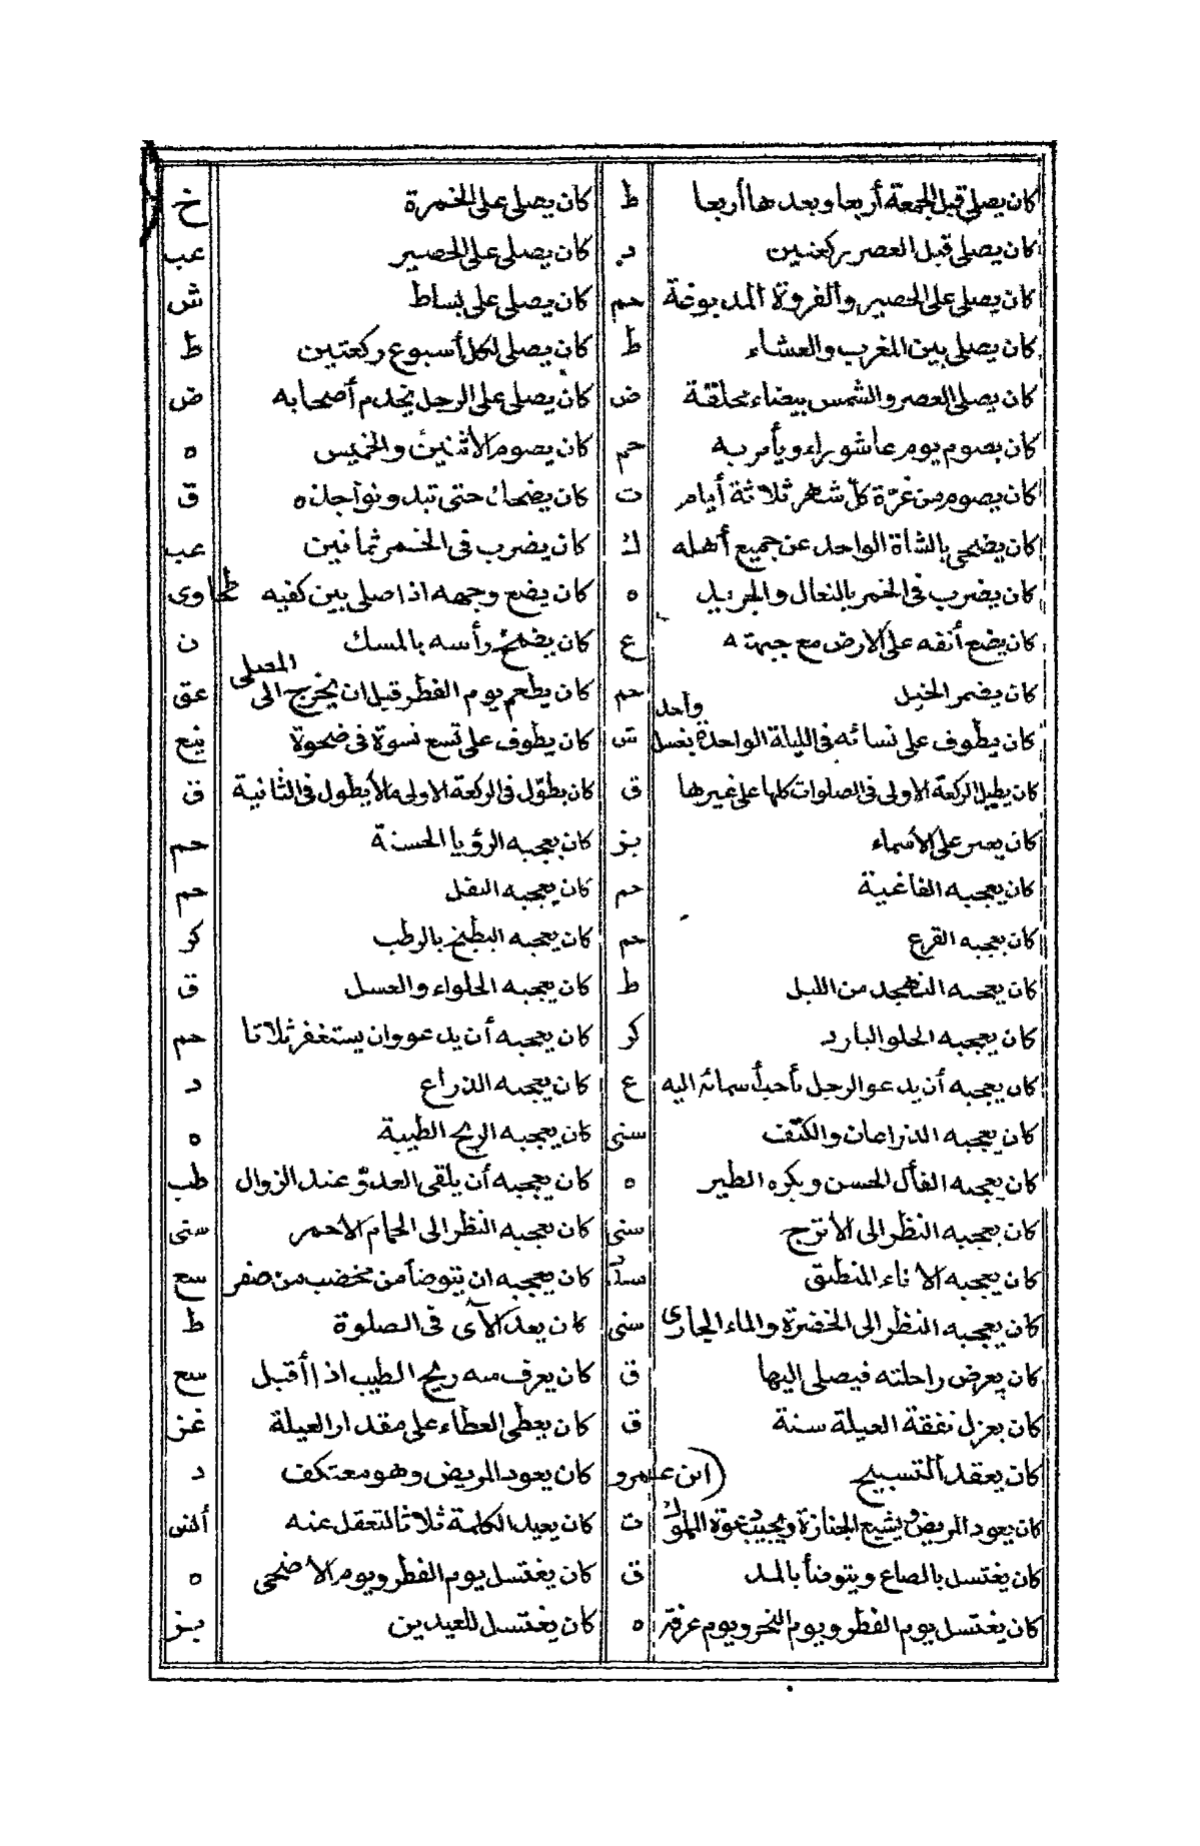 كان يصلي قبل الجمعة أربعا وبعدها أربعا ط كان يصلي على الخمرة خ
كان يصلي قبل العصر ركعتين د كان يصلي على الحصير عب
كان يصلي على الحصير والفروة المدبوغة حم كان يصلي على بساط ش
كان يصلي بين المغرب والعشاء ط كان يصلي لكل أسبوع ركعتين ط
كان يصلي العصر والشمس بيضاء محلقة ض كان يصلي على الرجل يخدم أصحابه ض
كان يصوم يوم عاشوراء ويأمر به حم كان يصوم الاثنين والخميس ه
كان يصوم من غرّة كلّ شهر ثلاثة أيام ت كان يضحك حتى تبدو نواجذه ق
كان يضحي بالشاة الواحد عن جميع أهله ك كان يضرب في الخمر ثمانين عب
كان يضرب في الخمر بالنعال والجريد ه كان يضع وجهه اذا صلى بين كفيه طحاوى
كان يضع أنفه على الارض مع جبهته ع كان يضمخ رأسه بالمسك ن
كان يضمر الخيل حم كان يطعم يوم الفطر قبل ان يخرج الى المصلى عق
كان يطوف على نسائه في الليلة الواحدة بغسل واحد ش كان يطوف على تسع نسوة في ضحوة
كان يطيل الركعة الاولى في الصلوات كلها على غيرها ق كان يطوّل في الركعة الاولى مالا يطول في الثانية ق
كان يعبر على الأسماء بز كان يعجبه الرؤيا الحسنة حم
كان يعجبه الفاغية حم كان يعجبه الثفل حم
كان يعجبه القرع حم كان يعجبه البطيخ بالرطب كر
كان يعجبه التهجد من الليل ط كان يعجبه الحلواء والعسل ق
كان يعجبه الحلو البارد كر كان يعجبه أن يدعو وان يستغفر ثلاثا حم
كان يعجبه أن يدعو الرجل بأحب أسمائه اليه ع كان يعجبه الذراع د
كان يعجبه الذراعان والكتف سنى كان يعجبه الريح الطيبة ه
كان يعجبه الفأل الحسن ويكره الطير ه كان يعجبه أن يلقى العدوّ عند الزوال طب
كان يعجبه النظر الى الاترج سنى كان يعجبه النظر الى الحمام الاحمر سنى
كان يعجبه الاناء المنطبق كان يعجبه ان يتوضأ من مخضب من صفر سع
كان يعجبه النظر الى الخضرة والماء الجارى سنى كان يعد الآى في الصلوة ط
كان يعرض راحلته فيصلي اليها ق كان يعرف منه ريح الطيب اذا أقبل سع
كان يعزل نفقة العيلة سنة ق كان يعطي العطاء على مقدار العيلة غز
كان يعقد التسبيح (ابن عمرو كان يعود المريض وهو معتكف د
كان يعود المريض ويشيع الجنازة ويجيب دعوة المملوك ت كان يعيد الكلمة ثلاثا لتعقل عنه أنس
كان يغتسل بالصاع ويتوضأ بالمد ق كان يغتسل يوم الفطر ويوم الاضحى ه
كان يغتسل يوم الفطر ويوم النحر ويوم عرفة ه كان يغتسل للعيدين بز